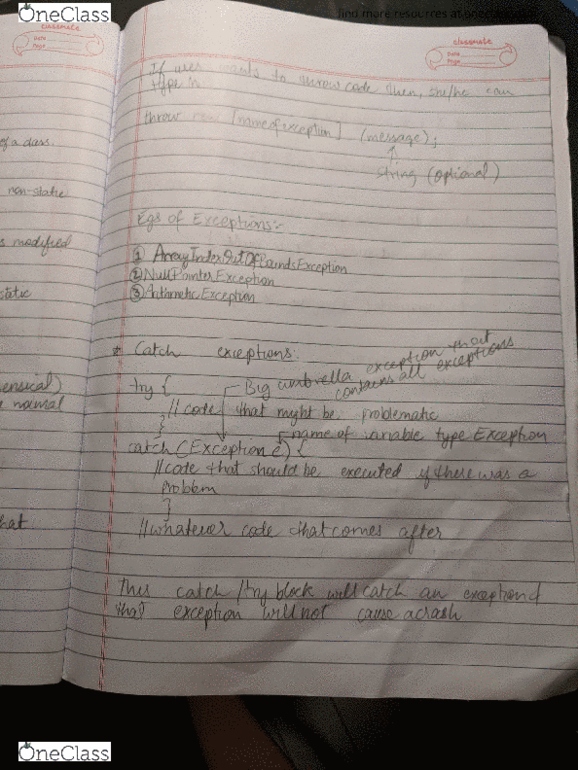 OneClass
find more resources at oneclass.com
classmate
Date
Page
classmate
Date
Page
If user wants to throw code then, she/he can
type in
throw new [name of exception] (message);
string (optional)
Egs of Exceptions:-
① ArrayIndexOutOfBoundsException
② NullPointerException
③ ArithmeticException
* Catch exceptions:
try { Big umbrella exception that
contains all exceptions
// code that might be problematic
}
name of variable type Exception
catch (Exception e) {
// code that should be executed if there was a
problem
}
// whatever code that comes after
This catch / try block will catch an exception &
exception will not cause a crash
of a class.
non-static
s modified
static
normal
hat
OneClass